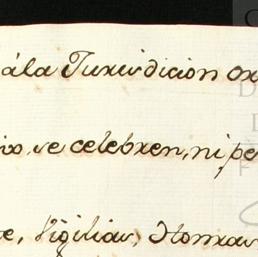 ála Jurisdicion or
se celebren, ni pe
Vigilias, Honras